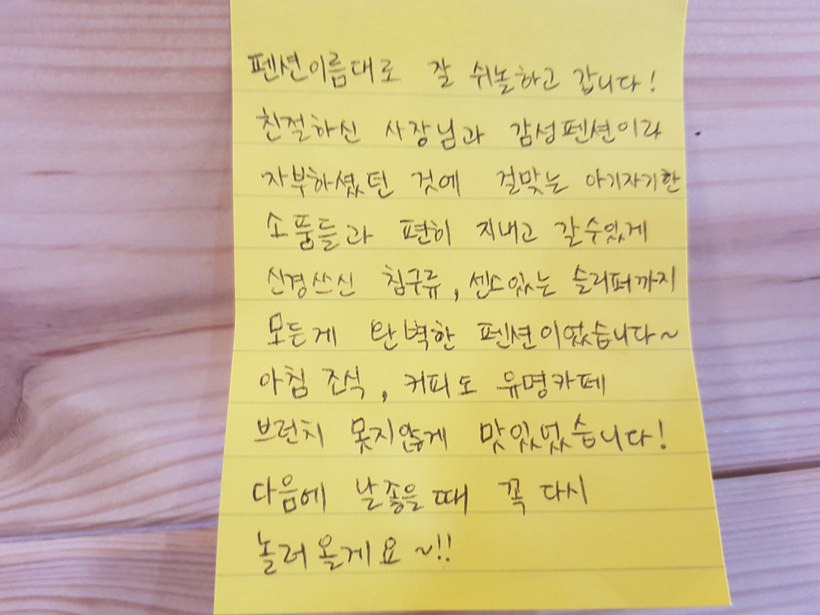 펜션이름대로 잘 쉬놀하고 갑니다!
친절하신 사장님과 감성펜션이라
자부하셨던 것에 걸맞는 아기자기한
소품들과 편히 지내고 갈수있게
신경쓰신 침구류, 센스있는 슬리퍼까지
모든게 완벽한 펜션이었습니다~
아침 조식, 커피도 유명카페
브런치 못지않게 맛있었습니다!
다음에 날좋을때 꼭 다시
놀러올게요~!!